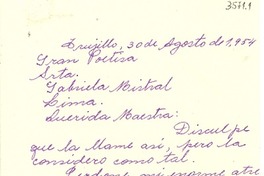 3571.1
Trujillo, 30 de Agosto de 1,954
Gran Poetisa
Srta.
Gabriela Mistral
Lima.
Querida Maestra:
Discul pe
que la llame así, pero la
considero como tal.
Perdone mi enorme atre